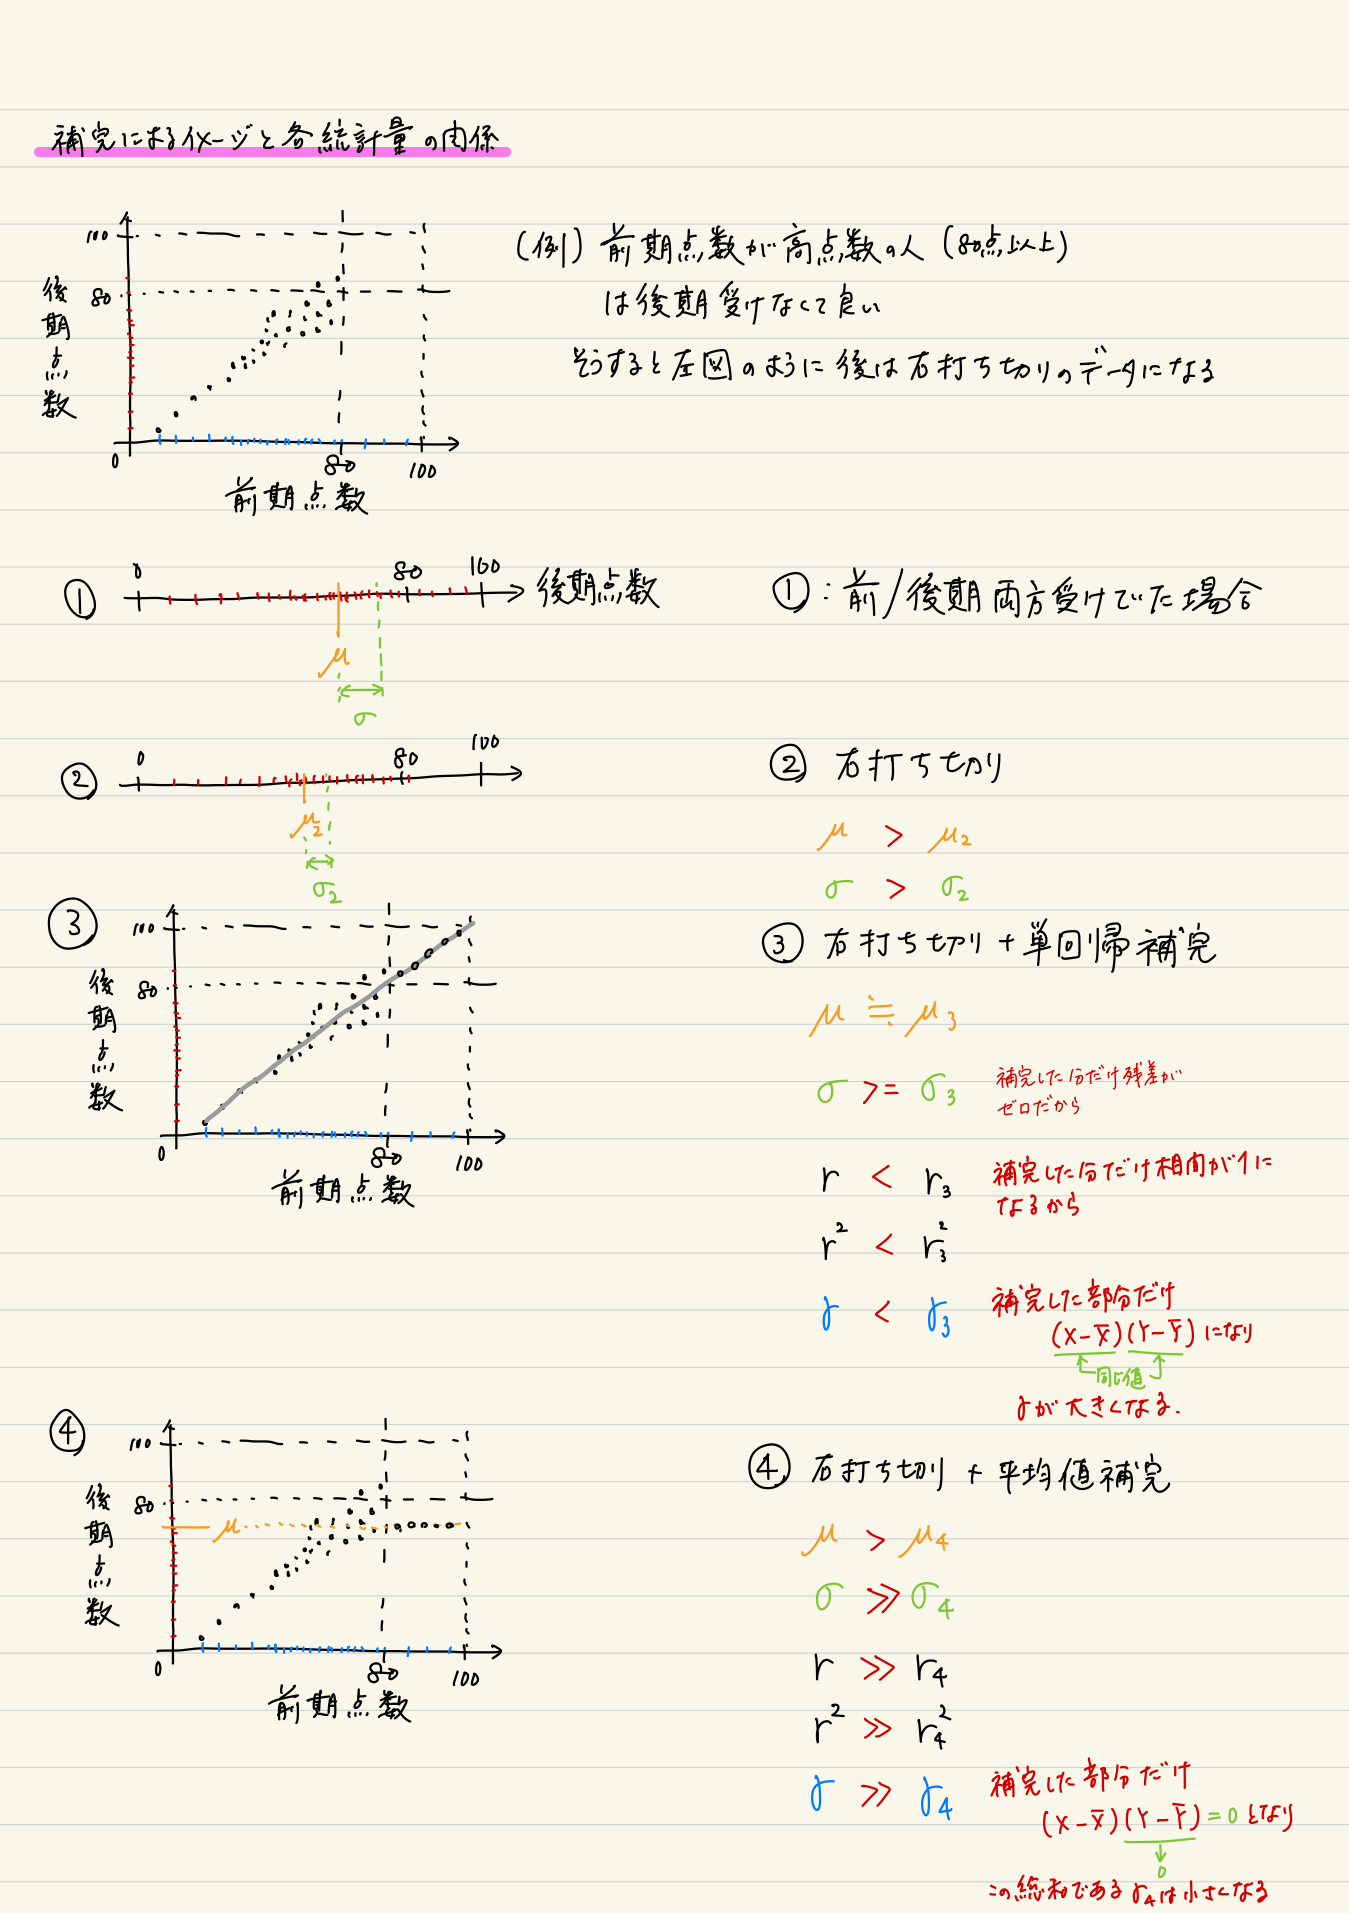 補完によるイメージと各統計量の関係
100
80
後期点数
0
80
100
前期点数
(例) 前期点数が高点数の人 (80点以上)
は後期受けなくて良い
そうすると左図のように後は右打ち切りのデータになる
① 0 80 100 後期点数
μ
σ
①:前/後期両方受けていた場合
② 0 80 100
μ2
σ2
② 右打ち切り
μ > μ2
σ > σ2
③
100
80
後期点数
0
80
100
前期点数
③ 右打ち切り + 単回帰補完
μ ≒ μ3
σ >= σ3 補完した分だけ残差が
ゼロだから
r < r3 補完した分だけ相関が1に
なるから
r² < r3²
γ < γ3 補完した部分だけ
(X-X̄)(Y-Ȳ) になり
同じ値
γが大きくなる.
④
100
80
後期点数
μ
0
80
100
前期点数
④ 右打ち切り + 平均値補完
μ > μ4
σ ≫ σ4
r ≫ r4
r² ≫ r4²
γ ≫ γ4 補完した部分だけ
(X-X̄)(Y-Ȳ) = 0 となり
0
この総和である γ4は小さくなる